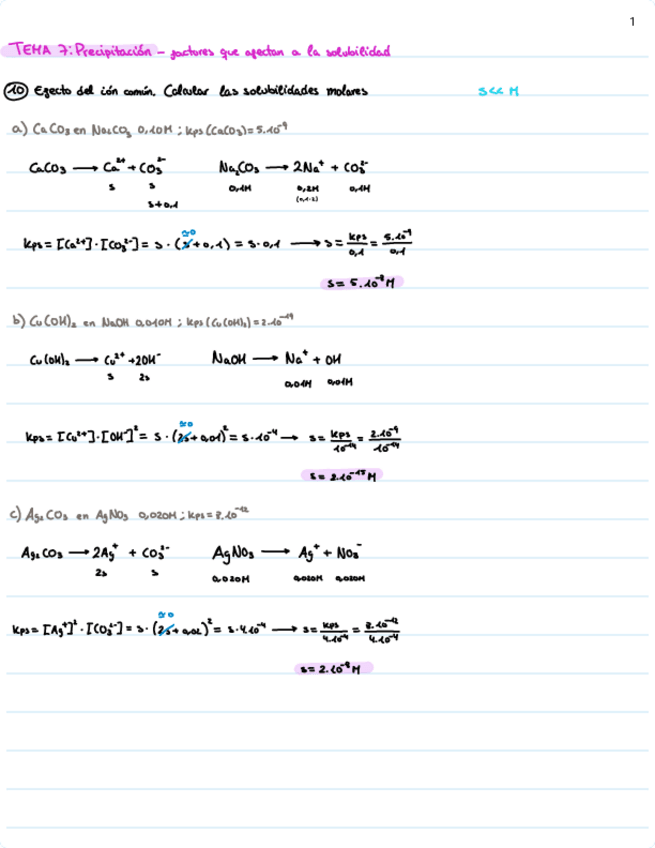 1
TEMA 7: Precipitación - factores que afectan a la solubilidad
10 Efecto del ión común. Calcular las solubilidades molares s<< M
a) CaCO₃ en Na₂CO₃ 0,10M ; kps (CaCO₃) = 5·10⁻⁹
CaCO₃ → Ca²⁺ + CO₃²⁻ Na₂CO₃ → 2Na⁺ + CO₃²⁻
s s 0,1M 0,2M 0,1M
s+0,1 (0,1·2)
≈0
kps = [Ca²⁺]·[CO₃²⁻] = s · (s+0,1) = s·0,1 → s = kps/0,1 = 5·10⁻⁹/0,1
s = 5·10⁻⁸ M
b) Cu(OH)₂ en NaOH 0,010M ; kps (Cu(OH)₂) = 2·10⁻¹⁹
Cu(OH)₂ → Cu²⁺ + 2OH⁻ NaOH → Na⁺ + OH
s 2s 0,01M 0,01M
≈0
kps = [Cu²⁺]·[OH⁻]² = s · (2s+0,01)² = s·10⁻⁴ → s =
s = 2·10⁻¹⁵ M
c) Ag₂CO₃ en AgNO₃ 0,020M ; kps = 8·10⁻¹²
Ag₂CO₃ → 2Ag⁺ + CO₃²⁻ AgNO₃ → Ag⁺ + NO₃⁻
2s s 0,020M 0,020M 0,020M
≈0
kps = [Ag⁺]² · [CO₃²⁻] = s · (2s+0,02)² = s·4·10⁻⁴ → s = kps/4·10⁻⁴ = 8·10⁻¹²/4·10⁻⁴
s = 2·10⁻⁸ M